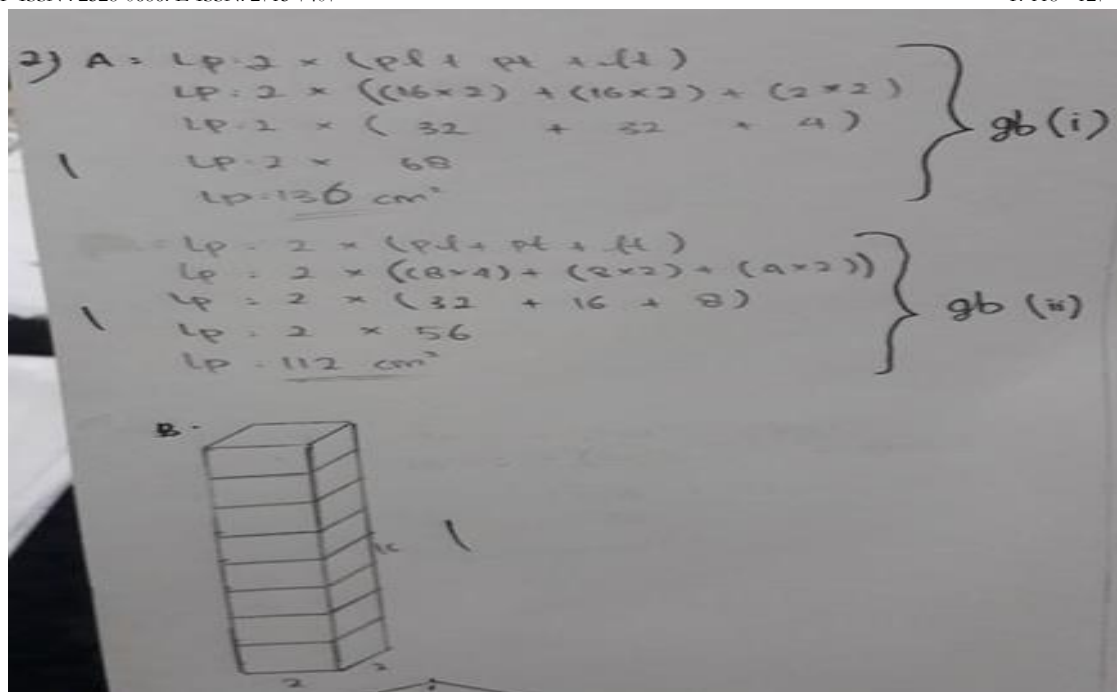 2) A = Lp = 2 × (pl + pt + lt)
Lp = 2 × ((16×2) + (16×2) + (2×2)
Lp = 2 × ( 32 + 32 + 4)
Lp = 2 × 68
Lp = 136 cm²
gb (i)
Lp = 2 × (pl + pt + lt)
Lp = 2 × ((8×4) + (8×2) + (4×2))
Lp = 2 × (32 + 16 + 8)
Lp = 2 × 56
Lp = 112 cm²
gb (ii)
B.
2
2